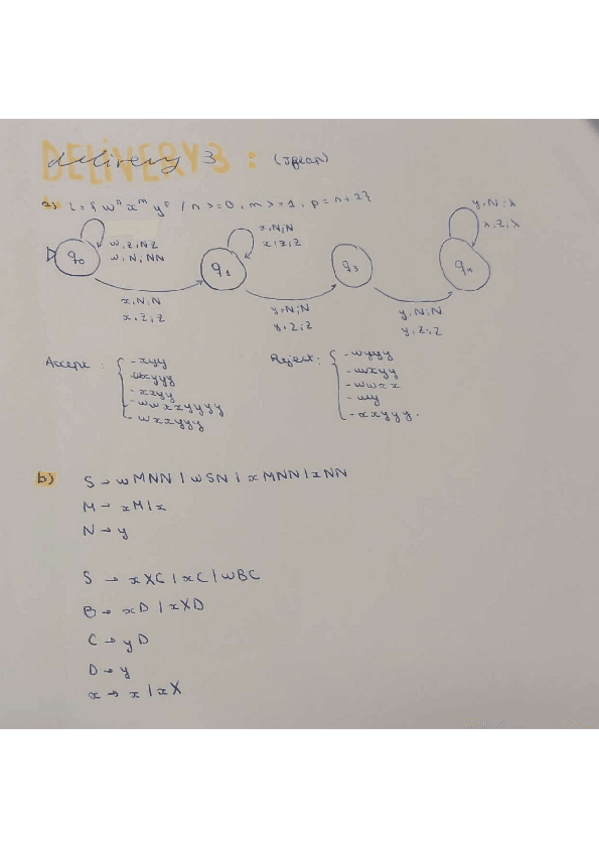 DELIVERY 3 :
delivery 3 (Jflap)
a) L = { wⁿ xᵐ yᵖ / n >= 0, m >= 1, p = n + 2 }
y, N ; λ
λ, Z ; λ
w, Z ; NZ
w, N ; NN
x, N ; N
x, Z ; Z
q0
q1
q3
x, N ; N
x, Z ; Z
y, N ; N
y, Z ; Z
y, N ; N
y, Z ; Z
Accept :
- xyy
- wxyyy
- xxyy
- wwxxyyyy
- wxxyyy
Reject :
- wyyy
- wxyy
- wwxx
- wy
- xxyyy.
b) S → wMNN | wSN | xMNN | xNN
M → xM | x
N → y
S → xXC | xC | wBC
B → xD | xXD
C → yD
D → y
x → x | xX